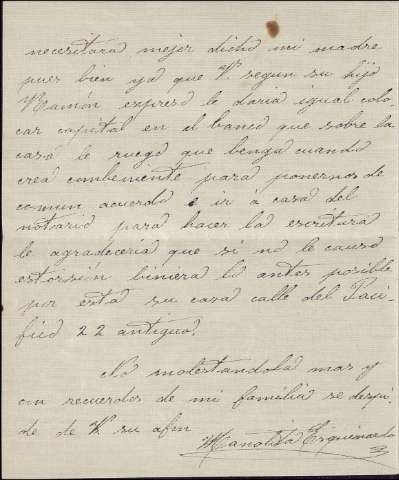 necesitara mejor dicho mi madre
pues bien ya que V. segun su hijo
Ramón expresó le daria igual colo-
car capital en el banco que sobre la
casa le ruego que benga cuando
crea combeniente para ponernos de
comun acuerdo e ir á casa del
notario para hacer la escritura
le agradeceria que si no le causa
estorsión biniera lo antes posible
por esta su casa calle del Pací-
fico 22 antiguo.
No molestandola mas y
con recuerdos de mi familia se despi-
de de V. su afm
Manolita